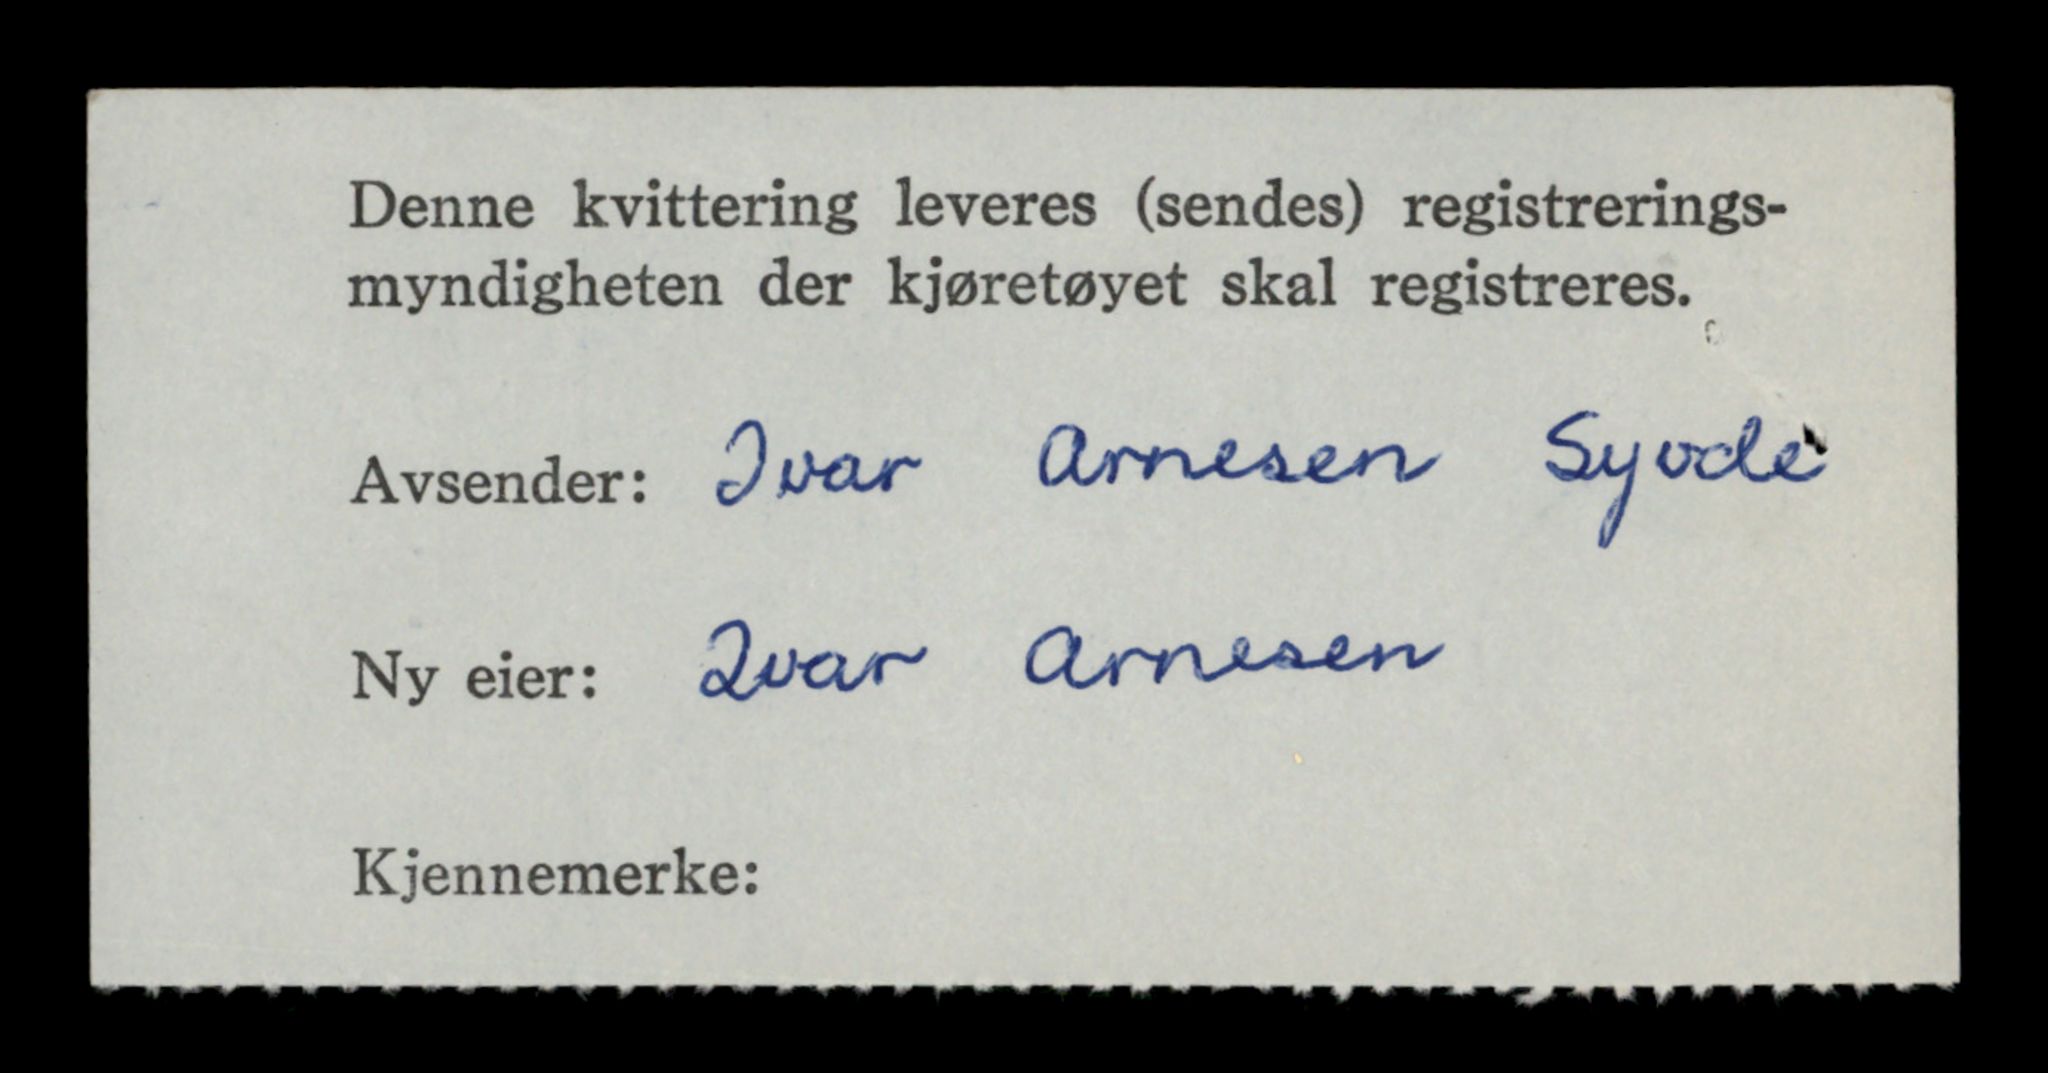 Denne kvittering leveres (sendes) registrerings-
myndigheten der kjøretøyet skal registreres.
Avsender: Ivar Arnesen Syvde
Ny eier: Ivar Arnesen
Kjennemerke: